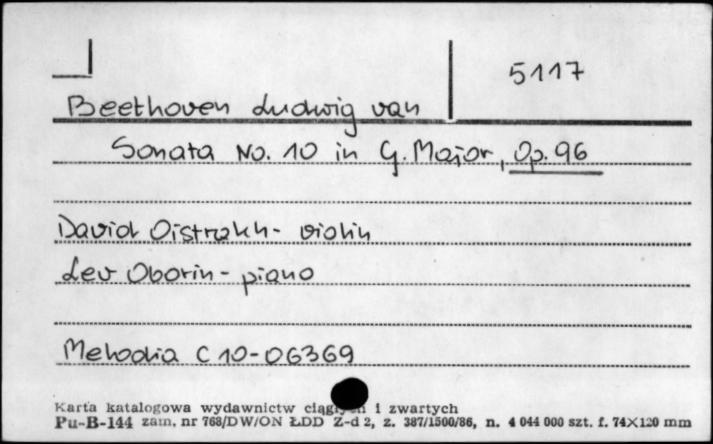 5117
Beethoven Ludwig van
Sonata No. 10 in G. Major, Op. 96
David Oistrakh - violin
Lev Oborin - piano
Melodia C 10-06369
Karta katalogowa wydawnictw i zwartych
Pu-B-144 zam. nr 768/DW/ON ŁDD Z-d 2, z. 387/1500/86, n. 4 044 000 szt. f. 74X120 mm